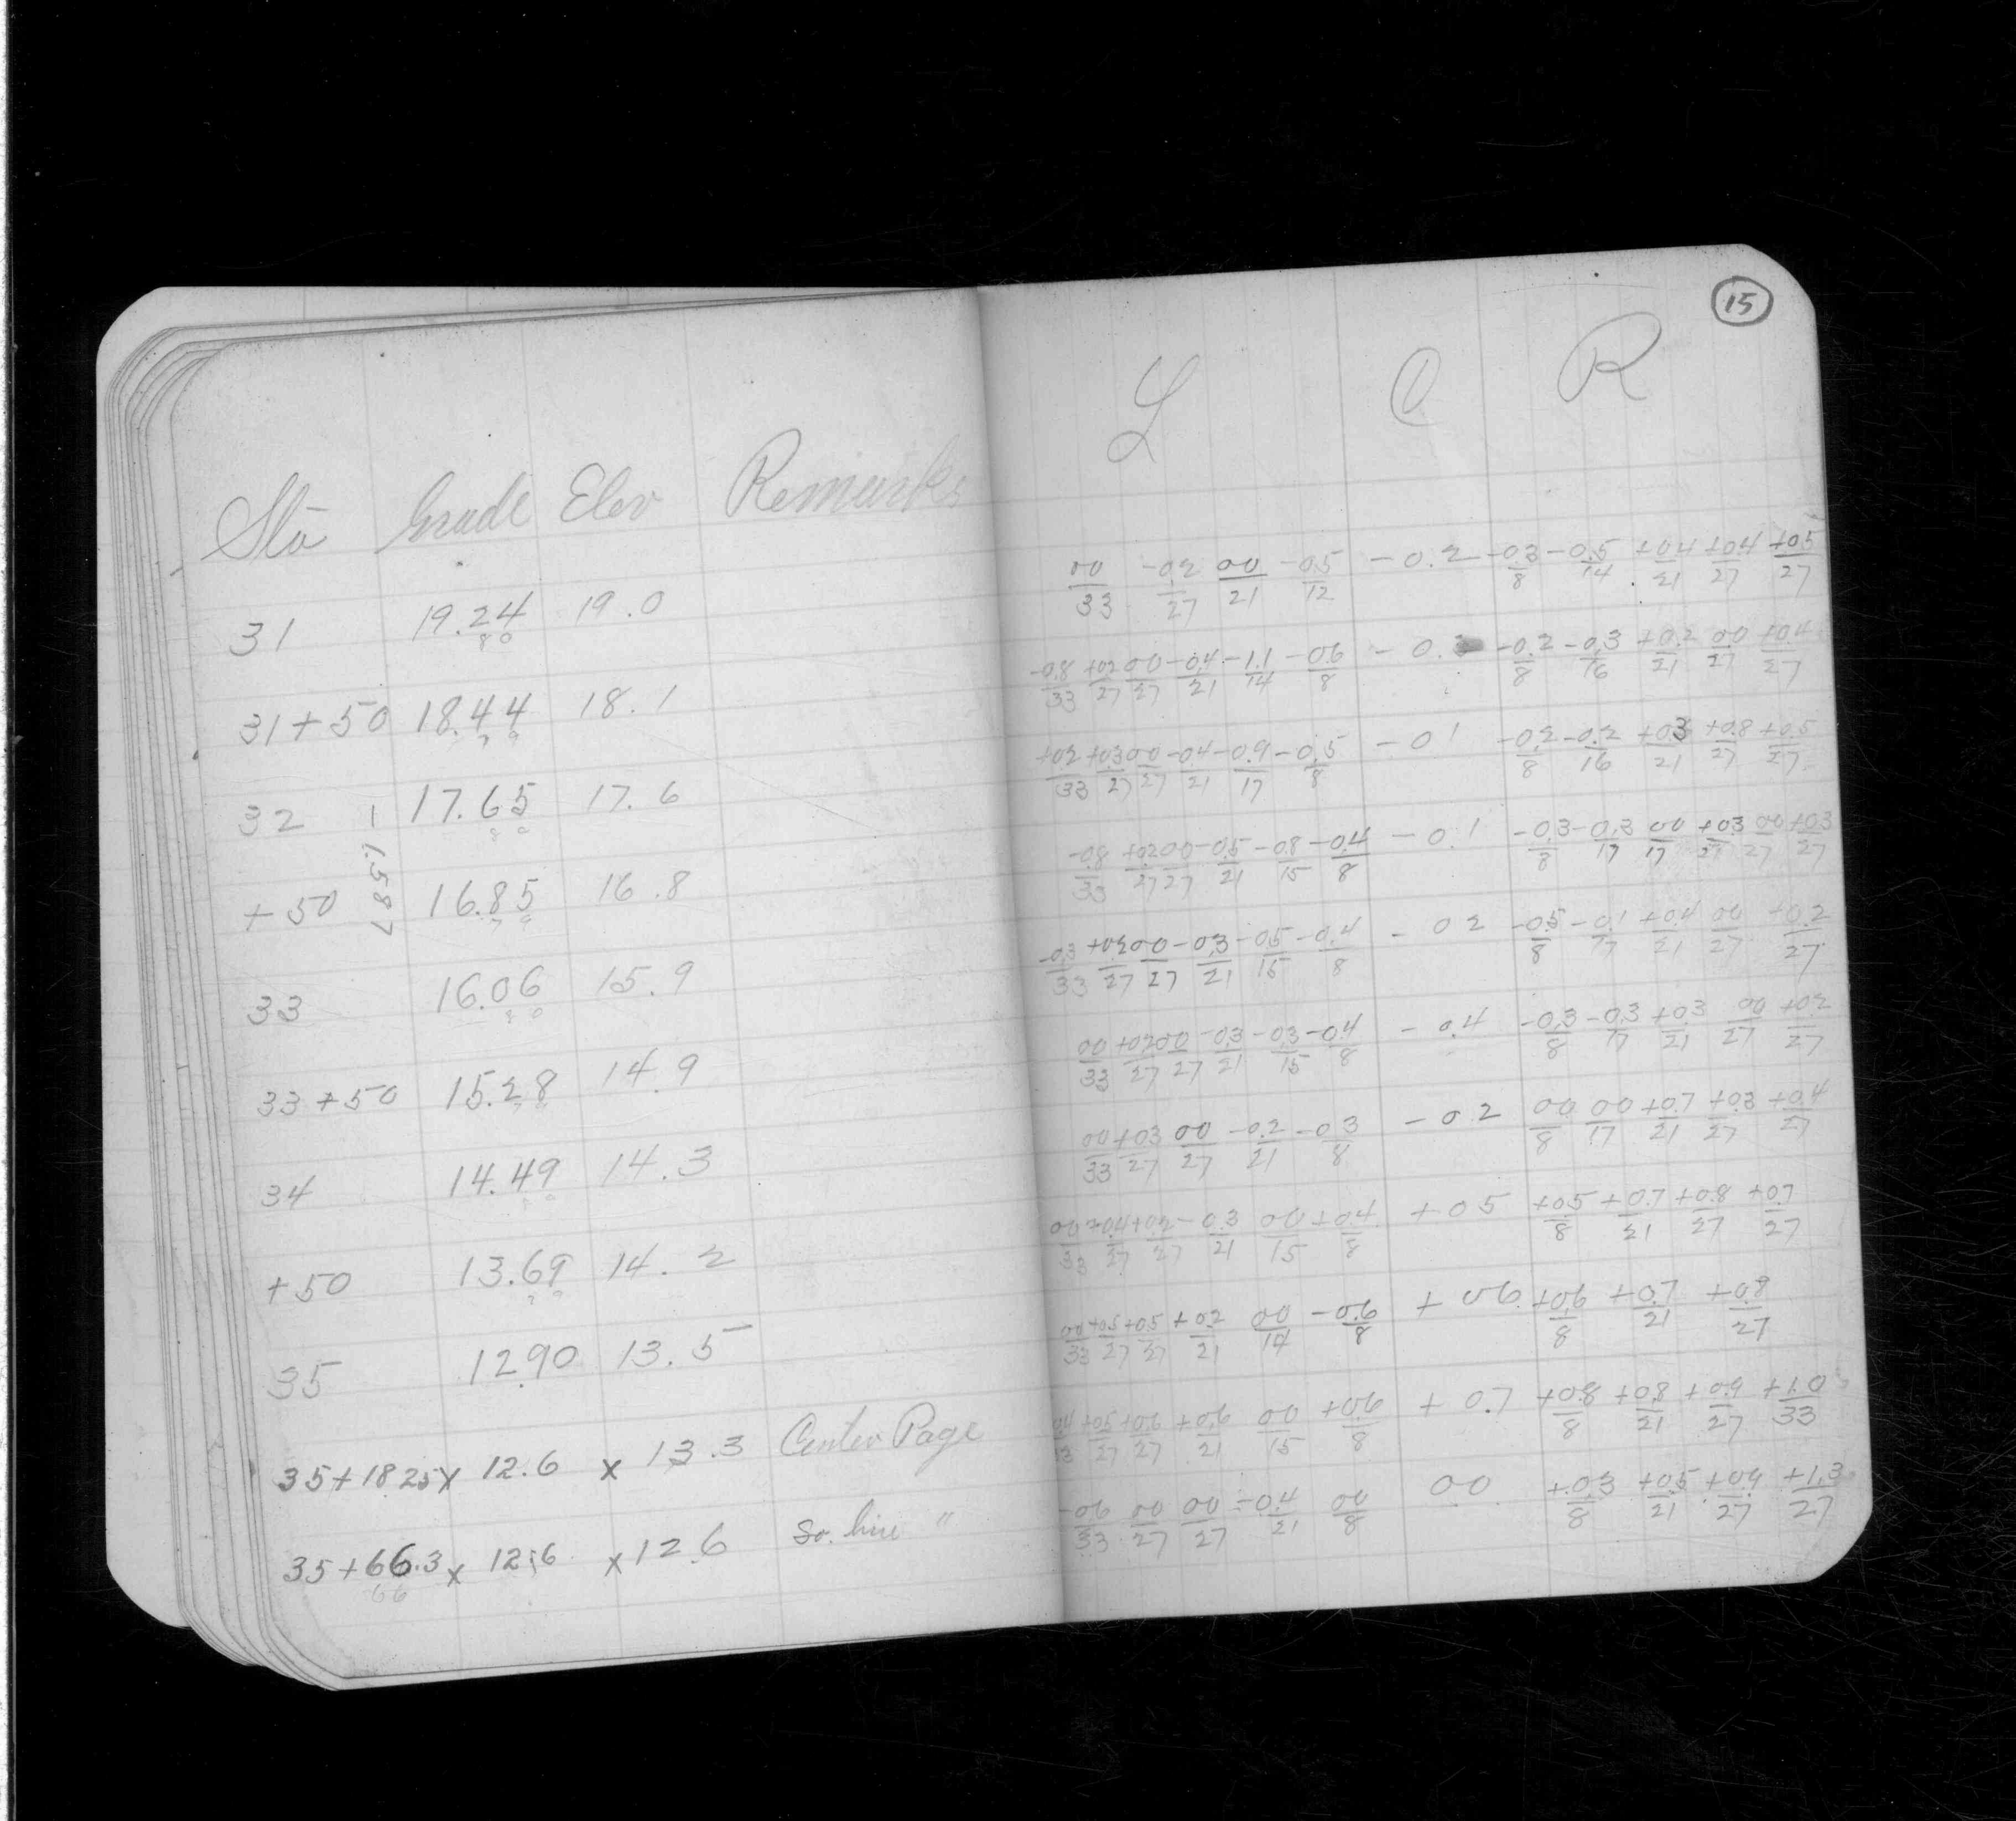 15
Sta Grade Elev Remarks
L C R
31 19.24 19.0
80
31+50 18.44 18.1
79
32 17.65 17.6
80
- 1.587
+50 16.85 16.8
79
33 16.06 15.9
80
33+50 15.28 14.9
79
34 14.49 14.3
80
+50 13.69 14.2
79
35 12.90 13.5
35+18.25 x 12.6 x 13.3 Center Page
35+66.3 x 12.6 x 12.6 So. line "
66
00/33 -0.2/27 00/21 -0.5/12 -0.2 -0.3/8 -0.5/14 +0.4/21 +0.4/27 +0.5/27
-0.8/33 +0.2/27 00/27 -0.4/21 -1.1/14 -0.6/8 -0. -0.2/8 -0.3/16 +0.2/21 00/27 +0.4/27
+0.2/33 +0.3/27 00/27 -0.4/21 -0.9/17 -0.5/8 -0.1 -0.2/8 -0.2/16 +0.3/21 +0.8/27 +0.5/27
-0.8/33 +0.2/27 00/27 -0.5/21 -0.8/15 -0.4/8 -0.1 -0.3/8 -0.3/17 00/17 +0.3/21 00/27 +0.3/27
-0.3/33 +0.2/27 00/27 -0.3/21 -0.5/16 -0.4/8 -0.2 -0.5/8 -0.1/17 +0.4/21 00/27 +0.2/27
00/33 +0.2/27 00/27 -0.3/21 -0.3/15 -0.4/8 -0.4 -0.3/8 -0.3/17 +0.3/21 00/27 +0.2/27
00/33 +0.3/27 00/27 -0.2/21 -0.3/8 -0.2 00/8 00/17 +0.7/21 +0.3/27 +0.4/27
00/33 +0.4/27 +0.2/27 -0.3/21 00/15 +0.4/8 +0.5 +0.5/8 +0.7/21 +0.8/27 +0.7/27
00/33 +0.5/27 +0.5/27 +0.2/21 00/14 -0.6/8 +0.6 +0.6/8 +0.7/21 +0.8/27
+0.5/27 +0.6/27 +0.6/21 00/15 +0.6/8 +0.7 +0.8/8 +0.8/21 +0.9/27 +1.0/33
-0.6/33 00/27 00/27 -0.4/21 00/8 00 +0.3/8 +0.5/21 +0.9/27 +1.3/27